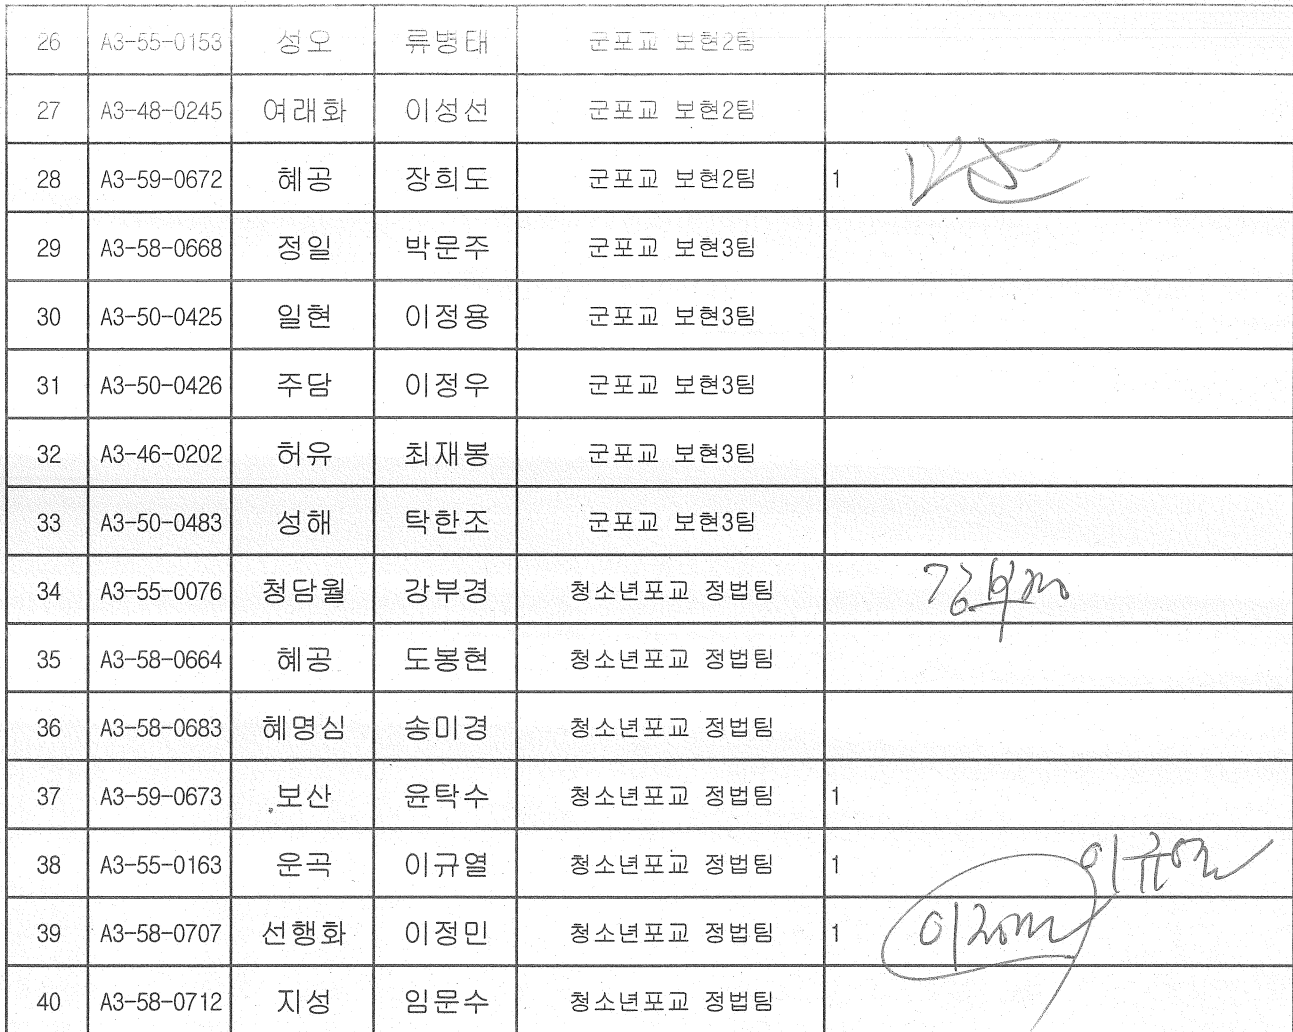 26 A3-55-0153 성오 류병태 군포교 보현2팀
27 A3-48-0245 여래화 이성선 군포교 보현2팀
28 A3-59-0672 혜공 장희도 군포교 보현2팀 1
29 A3-58-0668 정일 박문주 군포교 보현3팀
30 A3-50-0425 일현 이정용 군포교 보현3팀
31 A3-50-0426 주담 이정우 군포교 보현3팀
32 A3-46-0202 허유 최재봉 군포교 보현3팀
33 A3-50-0483 성해 탁한조 군포교 보현3팀
34 A3-55-0076 청담월 강부경 청소년포교 정법팀 강부경
35 A3-58-0664 혜공 도봉현 청소년포교 정법팀
36 A3-58-0683 혜명심 송미경 청소년포교 정법팀
37 A3-59-0673 보산 윤탁수 청소년포교 정법팀 1
38 A3-55-0163 운곡 이규열 청소년포교 정법팀 1 이규열
39 A3-58-0707 선행화 이정민 청소년포교 정법팀 1 이정민
40 A3-58-0712 지성 임문수 청소년포교 정법팀